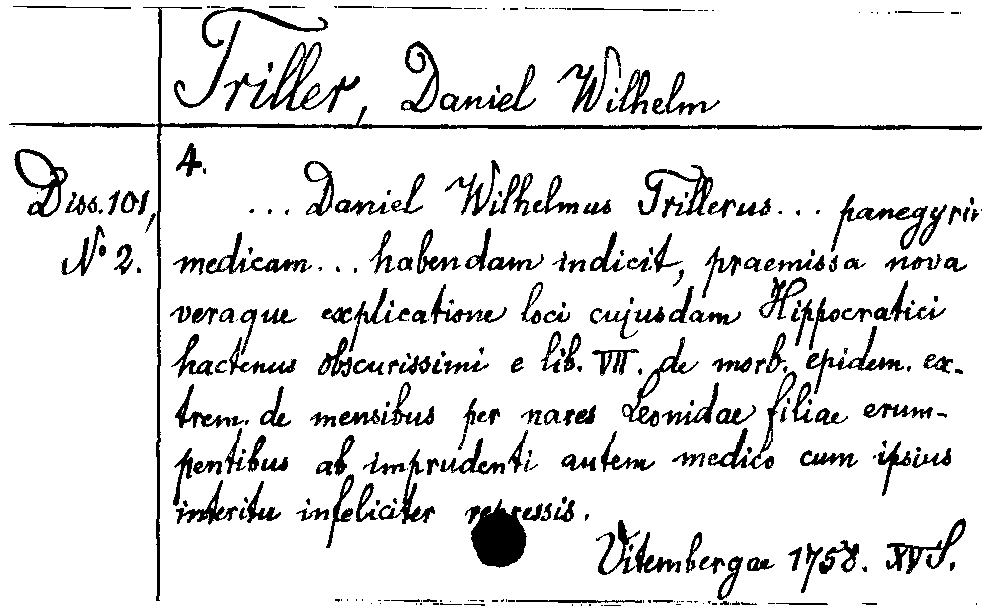 Triller, Daniel Wilhelm
Diss. 101,
No 2.
4.
... Daniel Wilhelmus Trillerus... panegyrin
medicam... habendam indicit, praemissa nova
veraque explicatione loci cujusdam Hippocratici
hactenus obscurissimi e lib. VII. de morb. epidem. ex-
trem. de mensibus per nares Leonidae filiae erum-
pentibus ab imprudenti autem medico cum ipsius
interitu infeliciter repressis.
Vitembergae 1758. XVS.